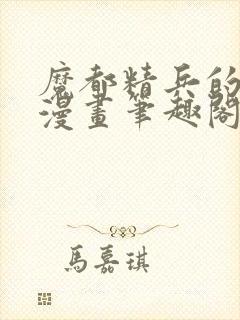 魔都精兵的
漫畫筆趣閣
馬嘉琪